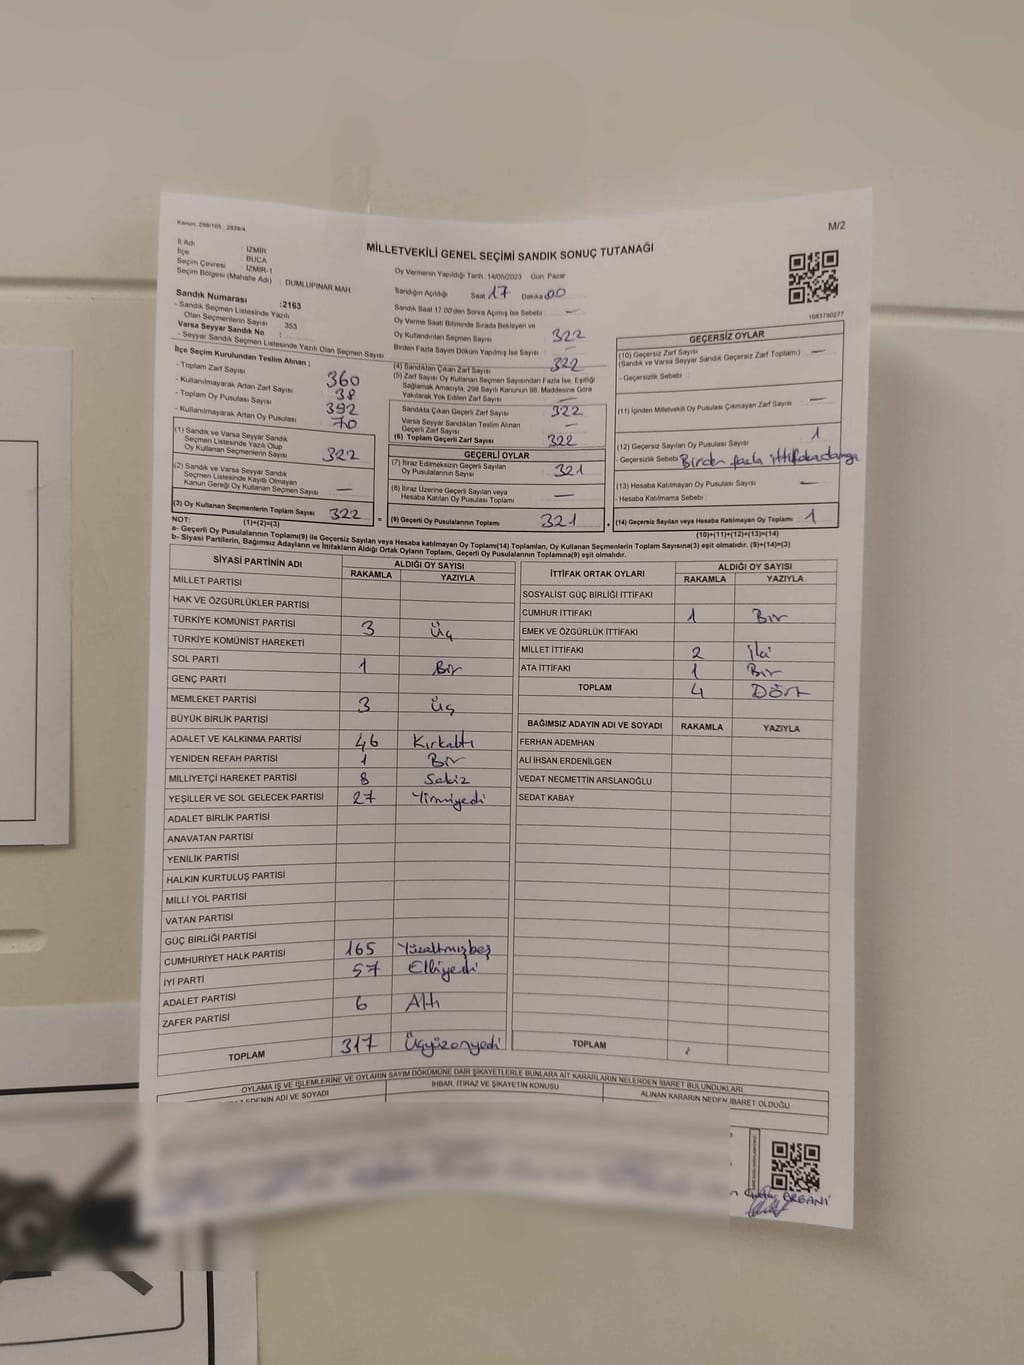 Kanun: 298/105 ; 2839/4
M/2
MİLLETVEKİLİ GENEL SEÇİMİ SANDIK SONUÇ TUTANAĞI
İl Adı : İZMİR
İlçe : BUCA
Seçim Çevresi : İZMİR-1
Seçim Bölgesi (Mahalle Adı) : DUMLUPINAR MAH.
Sandık Numarası :2163
- Sandık Seçmen Listesinde Yazılı
Olan Seçmenlerin Sayısı : 353
Varsa Seyyar Sandık No :
- Seyyar Sandık Seçmen Listesinde Yazılı Olan Seçmen Sayısı
İlçe Seçim Kurulundan Teslim Alınan ;
- Toplam Zarf Sayısı 360
- Kullanılmayarak Artan Zarf Sayısı 38
- Toplam Oy Pusulası Sayısı 392
- Kullanılmayarak Artan Oy Pusulası 70
(1) Sandık ve Varsa Seyyar Sandık
Seçmen Listesinde Yazılı Olup
Oy Kullanan Seçmenlerin Sayısı 322
(2) Sandık ve Varsa Seyyar Sandık
Seçmen Listesinde Kayıtlı Olmayan
Kanun Gereği Oy Kullanan Seçmen Sayısı —
(3) Oy Kullanan Seçmenlerin Toplam Sayısı 322
(1)+(2)=(3)
Oy Vermenin Yapıldığı Tarih: 14/05/2023 Gün Pazar
Sandığın Açıldığı Saat 17 Dakika 00
Sandık Saat 17:00'den Sonra Açılmış İse Sebebi —
Oy Verme Saati Bitiminde Sırada Bekleyen ve
Oy Kullandırılan Seçmen Sayısı 322
Birden Fazla Sayım Döküm Yapılmış İse Sayısı —
(4) Sandıktan Çıkan Zarf Sayısı 322
(5) Zarf Sayısı Oy Kullanan Seçmen Sayısından Fazla İse, Eşitliği
Sağlamak Amacıyla, 298 Sayılı Kanunun 98. Maddesine Göre
Yakılarak Yok Edilen Zarf Sayısı —
Sandıkta Çıkan Geçerli Zarf Sayısı 322
Varsa Seyyar Sandıktan Teslim Alınan
Geçerli Zarf Sayısı —
(6) Toplam Geçerli Zarf Sayısı 322
GEÇERLİ OYLAR
(7) İtiraz Edilmeksizin Geçerli Sayılan
Oy Pusulalarının Sayısı 321
(8) İtiraz Üzerine Geçerli Sayılan veya
Hesaba Katılan Oy Pusulası Toplamı —
= (9) Geçerli Oy Pusulalarının Toplamı 321
1083790277
GEÇERSİZ OYLAR
(10) Geçersiz Zarf Sayısı
(Sandık ve Varsa Seyyar Sandık Geçersiz Zarf Toplamı) —
- Geçersizlik Sebebi :
(11) İçinden Milletvekili Oy Pusulası Çıkmayan Zarf Sayısı —
(12) Geçersiz Sayılan Oy Pusulası Sayısı 1
- Geçersizlik Sebebi Birden fazla ittifakadamga
(13) Hesaba Katılmayan Oy Pusulası Sayısı —
- Hesaba Katılmama Sebebi :
+ (14) Geçersiz Sayılan veya Hesaba Katılmayan Oy Toplamı 1
(10)+(11)+(12)+(13)=(14)
NOT:
a- Geçerli Oy Pusulaları Toplamı(9) ile Geçersiz Sayılan veya Hesaba Katılmayan Oy Toplamı(14) Toplamları, Oy Kullanan Seçmenlerin Toplam Sayısına(3) eşit olmalıdır. (9)+(14)=(3)
b- Siyasi Partilerin, Bağımsız Adayların ve İttifakların Aldığı Ortak Oyların Toplamı, Geçerli Oy Pusulalarının Toplamına(9) eşit olmalıdır.
SİYASİ PARTİNİN ADI ALDIĞI OY SAYISI
RAKAMLA YAZIYLA
MİLLET PARTİSİ
HAK VE ÖZGÜRLÜKLER PARTİSİ
TÜRKİYE KOMÜNİST PARTİSİ 3 Üç
TÜRKİYE KOMÜNİST HAREKETİ
SOL PARTİ 1 Bir
GENÇ PARTİ
MEMLEKET PARTİSİ 3 Üç
BÜYÜK BİRLİK PARTİSİ
ADALET VE KALKINMA PARTİSİ 46 Kırkaltı
YENİDEN REFAH PARTİSİ 1 Bir
MİLLİYETÇİ HAREKET PARTİSİ 8 Sekiz
YEŞİLLER VE SOL GELECEK PARTİSİ 27 Yirmiyedi
ADALET BİRLİK PARTİSİ
ANAVATAN PARTİSİ
YENİLİK PARTİSİ
HALKIN KURTULUŞ PARTİSİ
MİLLİ YOL PARTİSİ
VATAN PARTİSİ
GÜÇ BİRLİĞİ PARTİSİ
CUMHURİYET HALK PARTİSİ 165 Yüzaltmışbeş
İYİ PARTİ 57 Elliyedi
ADALET PARTİSİ
ZAFER PARTİSİ 6 Altı
TOPLAM 317 Üçyüzonyedi
İTTİFAK ORTAK OYLARI ALDIĞI OY SAYISI
RAKAMLA YAZIYLA
SOSYALİST GÜÇ BİRLİĞİ İTTİFAKI
CUMHUR İTTİFAKI 1 Bir
EMEK VE ÖZGÜRLÜK İTTİFAKI
MİLLET İTTİFAKI 2 İki
ATA İTTİFAKI 1 Bir
TOPLAM 4 Dört
BAĞIMSIZ ADAYIN ADI VE SOYADI RAKAMLA YAZIYLA
FERHAN ADEMHAN
ALİ İHSAN ERDENİLGEN
VEDAT NECMETTİN ARSLANOĞLU
SEDAT KABAY
TOPLAM
OYLAMA İŞ VE İŞLEMLERİNE VE OYLARIN SAYIM DÖKÜMÜNE DAİR ŞİKAYETLERLE BUNLARA AİT KARARLARIN NELERDEN İBARET BULUNDUKLARI
EDENİN ADI VE SOYADI İHBAR, İTİRAZ VE ŞİKAYETİN KONUSU ALINAN KARARIN NEDEN İBARET OLDUĞU